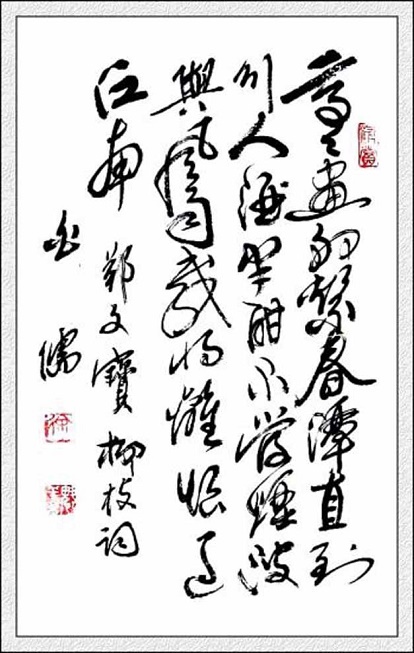 亭々畫舸繫春潭直到
行人酒半酣不管煙波
與風雨載將離恨過
江南
鄭文寶柳枝詞